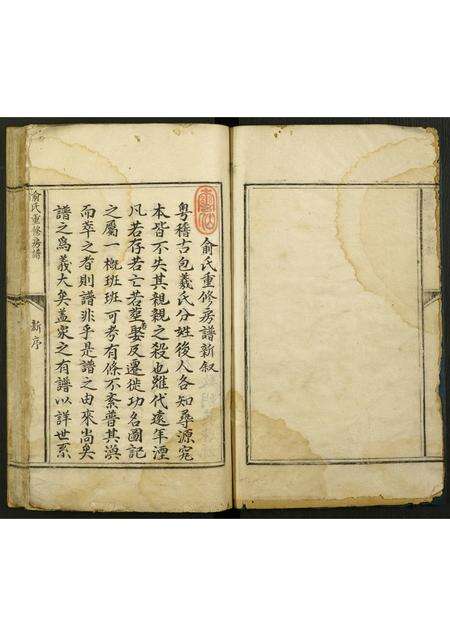 俞氏重修房譜新叙
粤稽古包羲氏分姓後人各知尋源究
本皆不失其親親之殺也雖代遠年湮
凡若存若亡若塟若娶及遷徙功名圖記
之屬一概班班可考有條不紊普其渙
而萃之者則譜非乎是譜之由來尚矣
譜之爲義大矣盖家之有譜以詳世系
俞氏重修房譜
新序